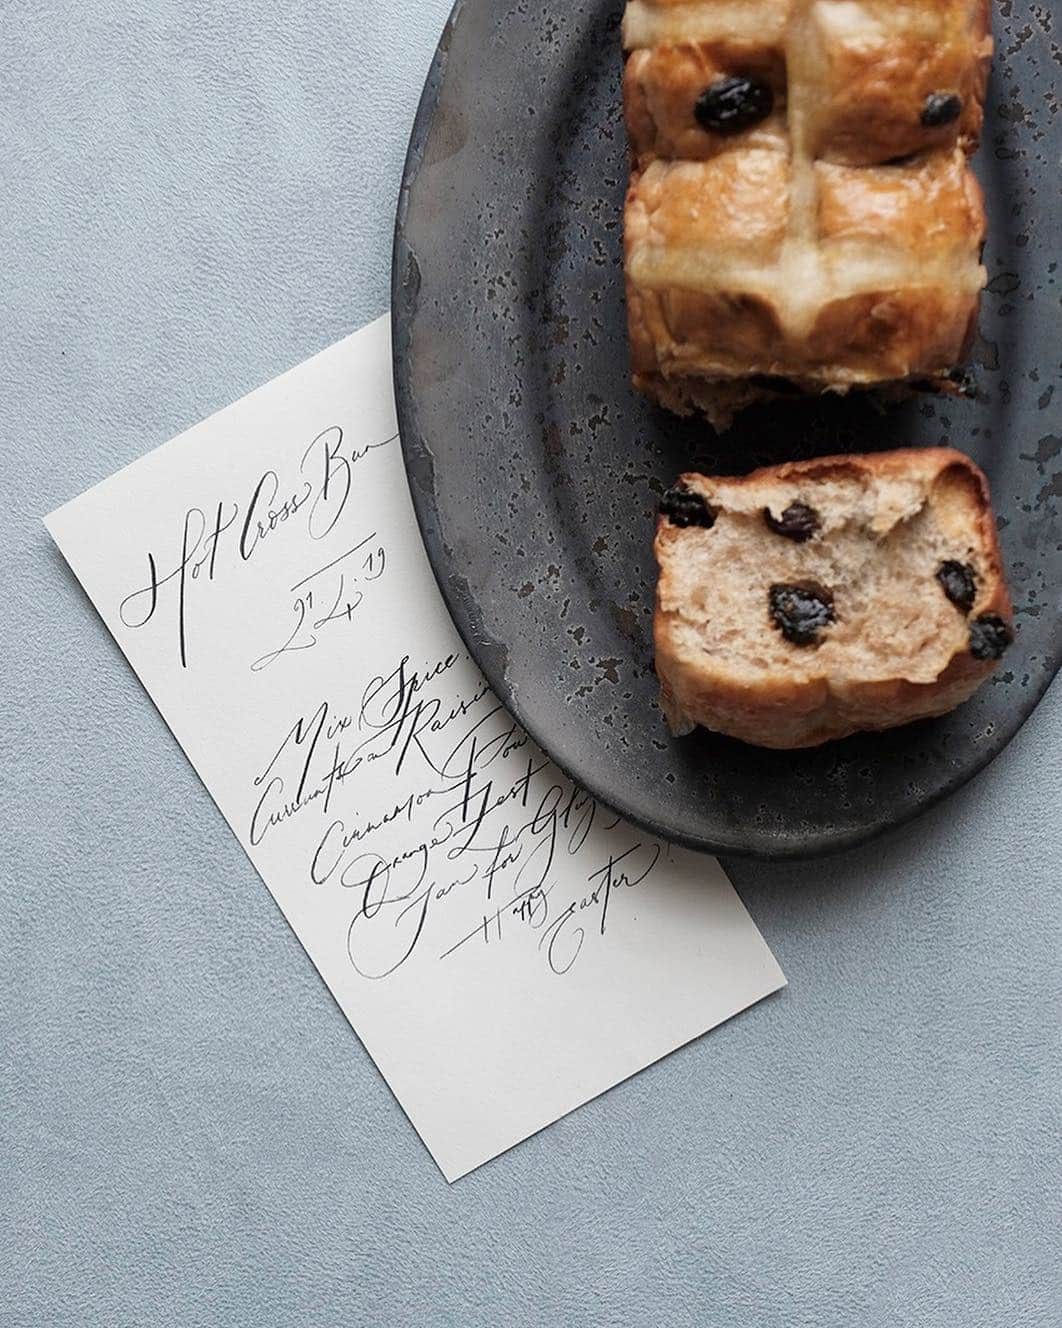 Hot Cross Bun
21.4.19
Mix Spice.
Currants and Raisin
Cinnamon Pow
Orange Zest
Jam for Glaz
Happy
Easter!